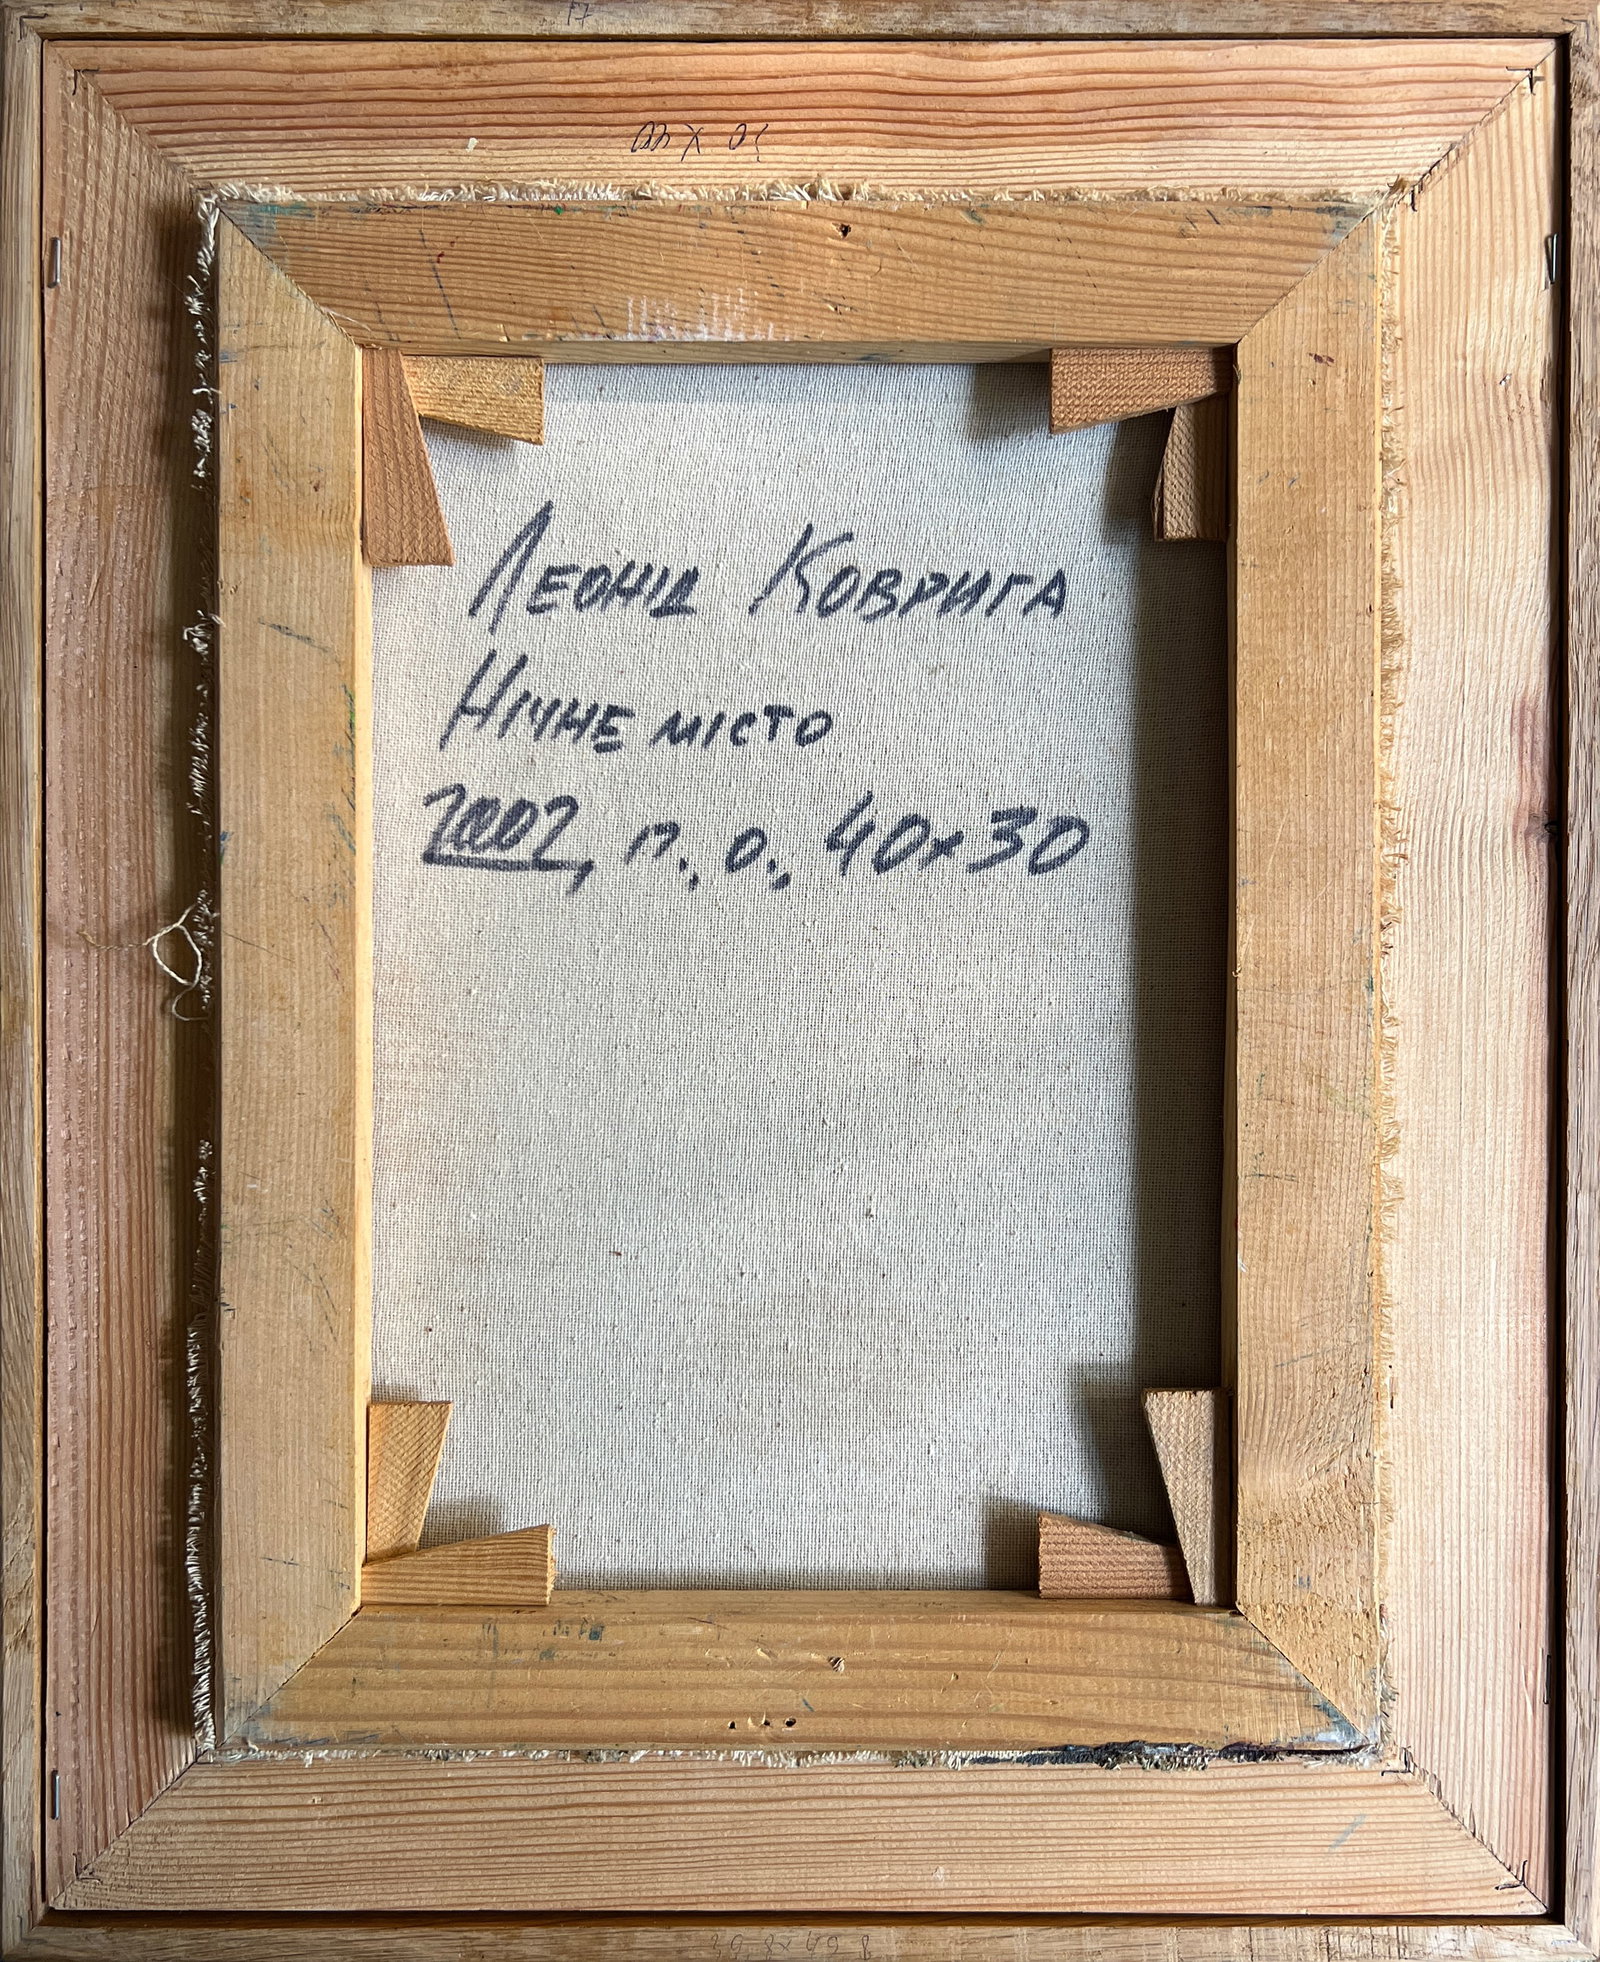 17
30 x 40
Леонід Коврига
Нічне місто
2002, п., о., 40х30